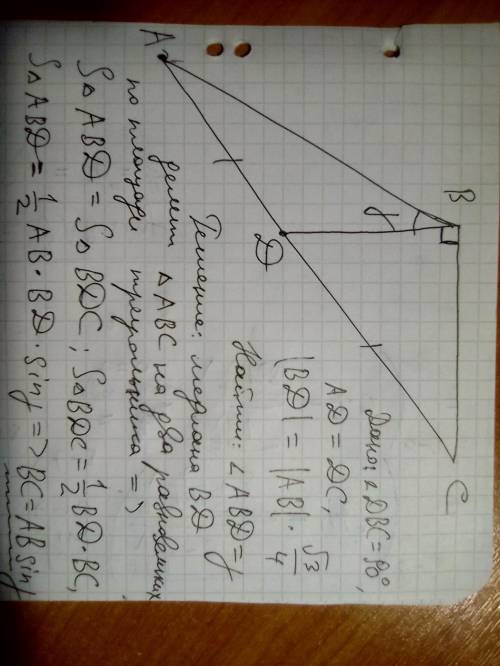 A
B
C
D
γ
Дано: ∠DBC = 90°,
AD = DC,
|BD| = |AB| · √3/4
Найти: ∠ABD = γ
Решение: медиана BD
делит △ABC на два равновеликих
по площади треугольника =>
S△ABD = S△BDC; S△BDC = 1/2 BD · BC,
S△ABD = 1/2 AB · BD · sin γ => BC = AB sin γ